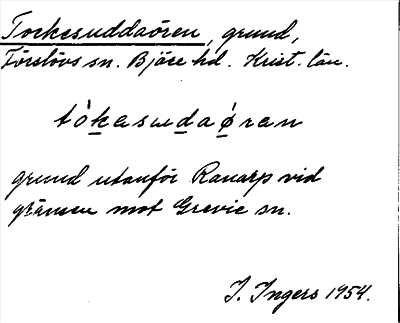 Tockesuddaören, grund,
Förslövs sn. Bjäre hd. Krist. län.
tòkasudaǿran
grund utanför Ranarp vid
gränsen mot Grevie sn.
I. Ingers 1954.